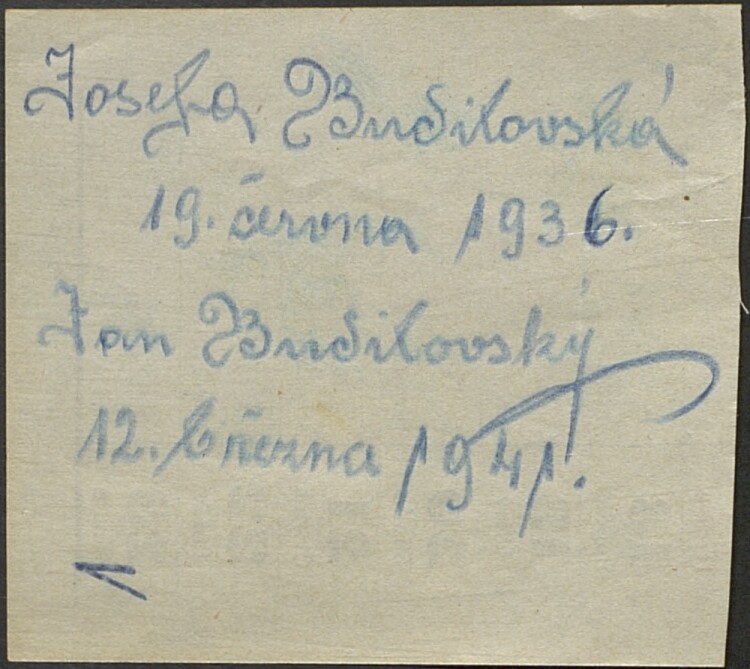 Josefa Budilovská
19. června 1936.
Jan Budilovský
12. března 1941.